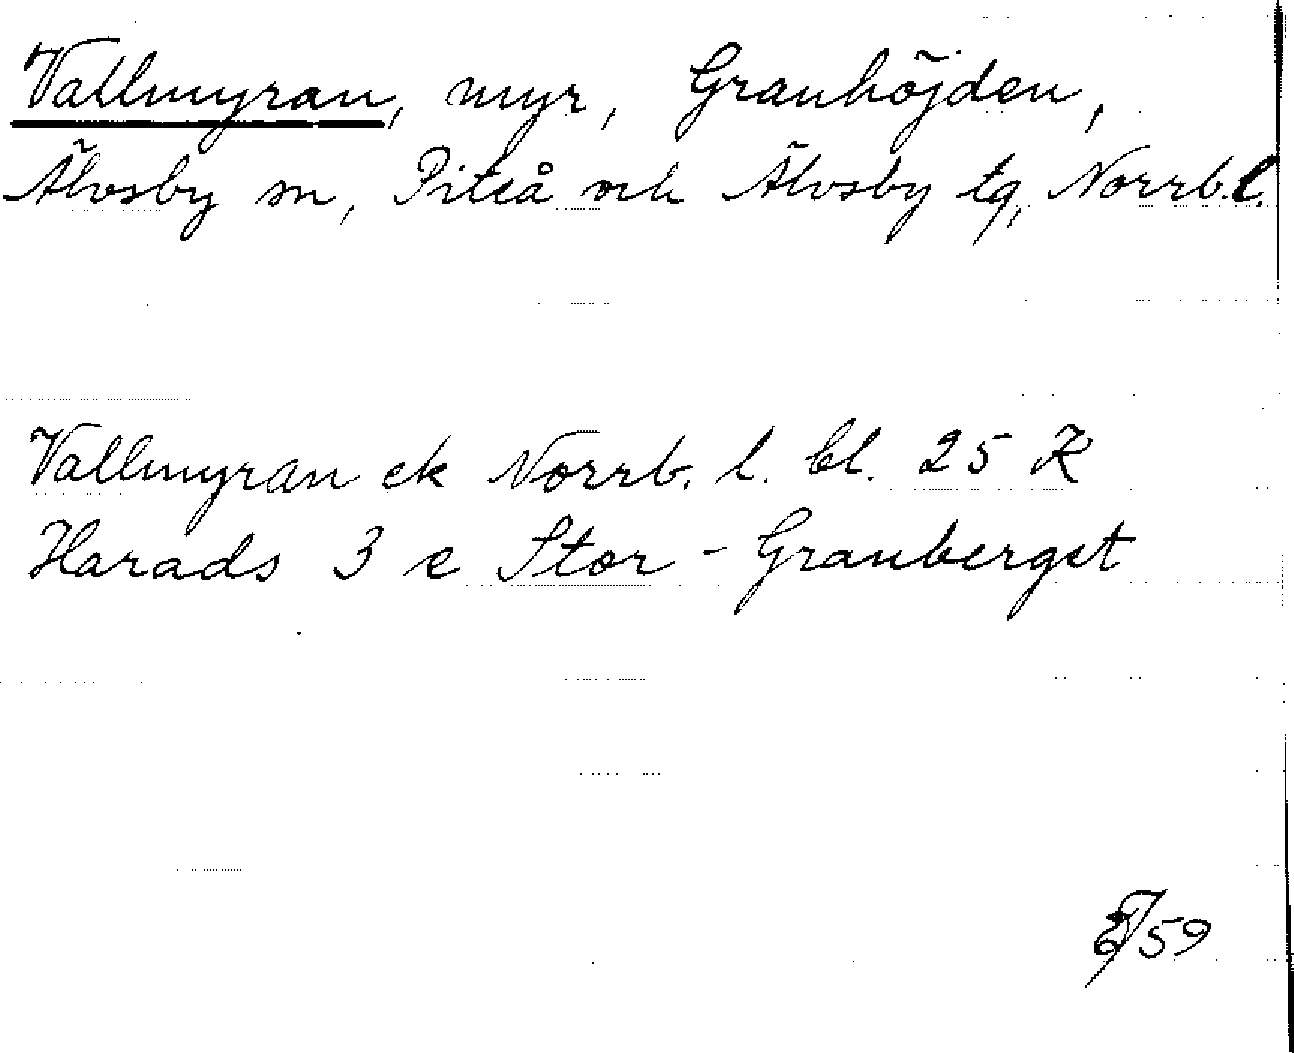 Vallmyran, myr, Granhöjden,
Älvsby sn, Piteå och Älvsby tg, Norrb.l.
Vallmyran ek Norrb. l. bl. 25 K
Harads 3 e Stor-Granberget
59